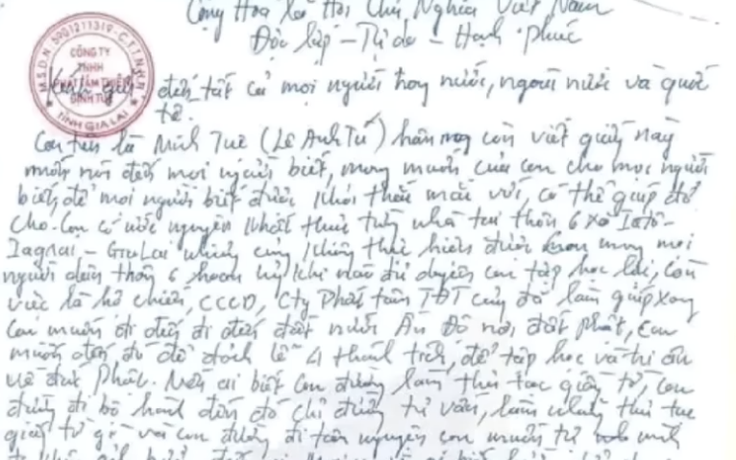 Cộng Hoà Xã Hội Chủ Nghĩa Việt Nam
Độc lập - Tự do - Hạnh Phúc
M.S.D.N: 5901211319 - C.T.T.N.H.H
CÔNG TY
TNHH
TỈNH GIA LAI
Kính gửi đến tất cả mọi người trong nước, ngoài nước và quốc
tế.
Con tên là Minh Tuệ (Lê Anh Tú) hôm nay con viết giấy này
muốn nói đến mọi người biết, mong muốn của con cho mọi người
biết, để mọi người biết được khỏi thắc mắc với, có thể giúp đỡ
cho. Con có ước nguyện khất thực từng nhà tại thôn 6 xã Iatô -
Iagrai - Gia Lai nhưng cũng không thực hiện được mong mọi
người dân thôn 6 hoan hỷ khi nào đủ duyên con tập học lại, còn
việc là hộ chiếu, CCCD, Cty Phát tâm TĐT cũng đã làm giúp xong
Con muốn đi đến đi đến đất nước Ấn Độ nơi đất Phật, con
muốn đến đó để đảnh lễ 4 thánh tích, để tập học và tri ân
về đức Phật. Nên ai biết con đường làm thủ tục giấy tờ, con
đường đi bộ hành đến đó chỉ đường tư vấn, làm những thủ tục
giấy tờ gì với con đường đi con nguyện con muốn tự